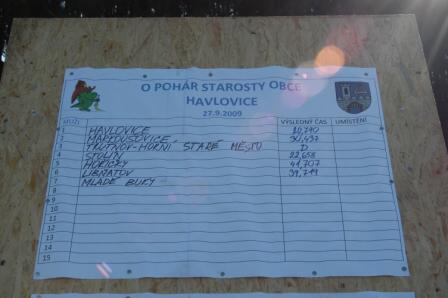 O POHÁR STAROSTY OBCE
HAVLOVICE
27.9.2009
MUŽI VÝSLEDNÝ ČAS UMÍSTĚNÍ
1 HAVLOVICE
2 MARŤOUŠOVICE 30,437
3 TRUTNOV-HORNÍ STARÉ MĚSTO D
4 STOLÍN 22,658
5 HOŘIČKY 41,707
6 LIBŇATOV 39,719
7 MLADÉ BUKY
8
9
10
11
12
13
14
15